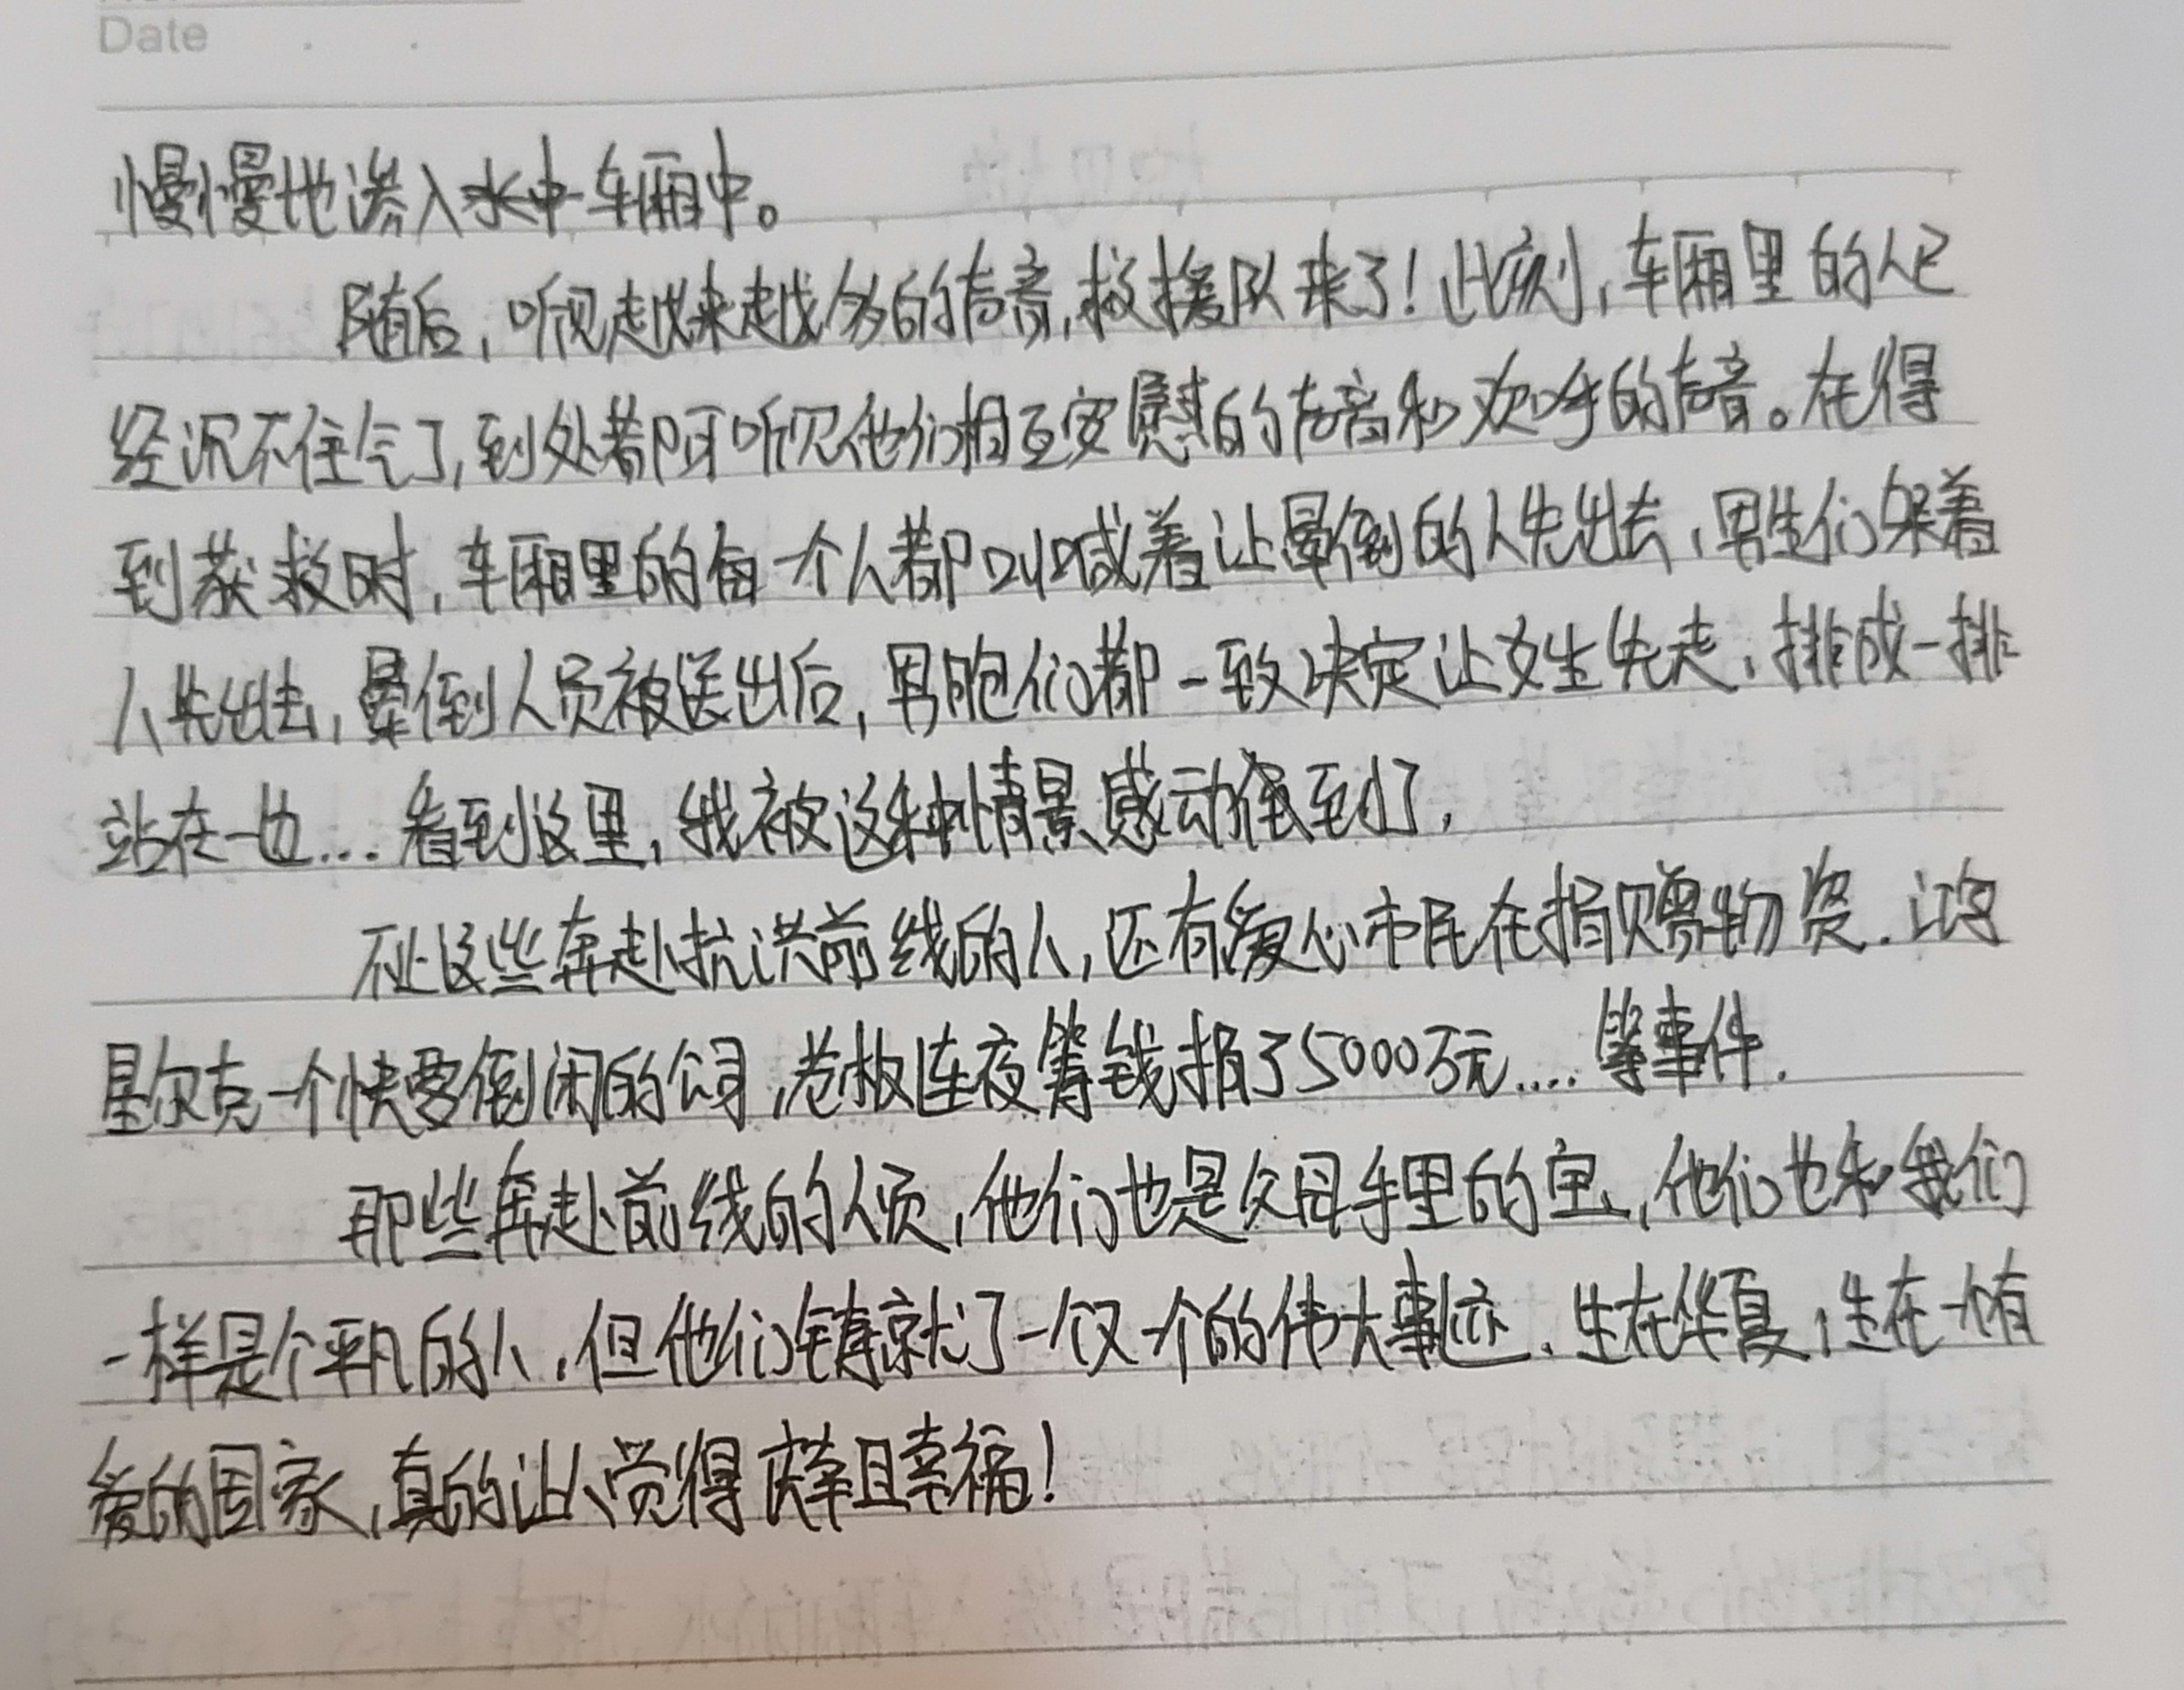 Date
慢慢地渗入水中车厢中。
随后，听见越来越多的声音，救援队来了！此刻，车厢里的人已
经沉不住气了，到处都可听见他们相互安慰的声音和欢呼的声音。在得
到获救时，车厢里的每一个人都叫喊着让晕倒的人先出去，男生们架着
人先出去，晕倒人员被送出后，男胞们都一致决定让女生先走，排成一排
站在一边...看到这里，我被这种情景感动到了，
不止这些奔赴抗洪前线的人，还有爱心市民在捐赠物资.
星尔克一个快要倒闭的公司，老板连夜筹钱捐了5000万元....等事件.
那些奔赴前线的人员，他们也是父母手里的宝，他们也和我们
一样是个平凡的人，但他们铸就了一个又一个的伟大事迹.生在华夏，生在一个有
爱的国家，真的让人觉得庆幸且幸福！